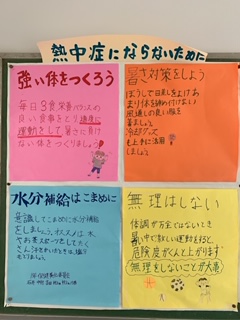 熱中症にならないために
強い体をつくろう
毎日3食栄養バランスの
良い食事をとり適度に
運動をして暑さに負け
ない体をつくりましょう
暑さ対策をしよう
ぼうしで日差しをよけ
まり体を締め付けない
風通しの良い服を
着ましょう
冷却グッズ
も上手に活用
しましょう
水分補給はこまめに
意識してこまめに水分補給
をしましょう。オススメは、水
無理はしない
体調が万全ではないとき、
暑い中で激しい運動をすると
危険度がぐんと上がります
無理をしないことが大事